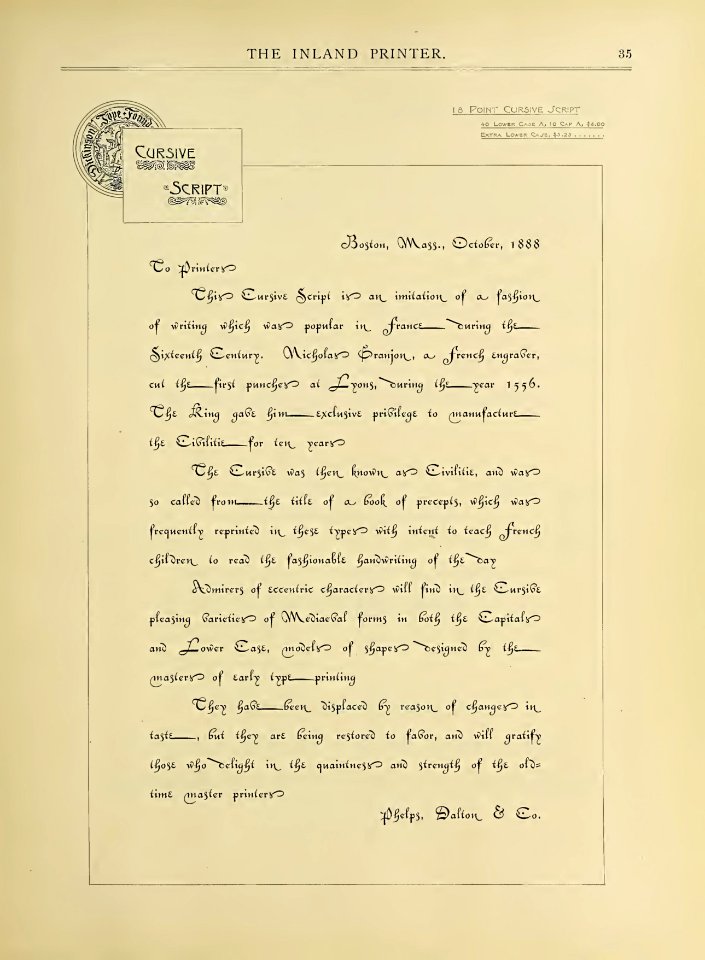 THE INLAND PRINTER.
35
18 POINT CURSIVE SCRIPT
40 LOWER CASE A, 10 CAP A, $6.00
EXTRA LOWER CASE, $3.20 . . . . . . .
Dickinson Type Found
CURSIVE
SCRIPT
Boston, Mass., October, 1888
To Printers
This Cursive Script is an imitation of a fashion
of writing which was popular in France during the
Sixteenth Century. Nicholas Granjon, a French engraver,
cut the first punches at Lyons, during the year 1556.
The King gave him exclusive privilege to manufacture
the Civilitie for ten years
The Cursive was then known as Civilitie, and was
so called from the title of a book of precepts, which was
frequently reprinted in these types with intent to teach French
children to read the fashionable handwriting of the day
Admirers of eccentric characters will find in the Cursive
pleasing varieties of Mediaeval forms in both the Capitals
and Lower Case, models of shapes designed by the
masters of early type printing
They have been displaced by reason of changes in
taste, but they are being restored to favor, and will gratify
those who delight in the quaintness and strength of the old=
time master printers
Phelps, Dalton & Co.